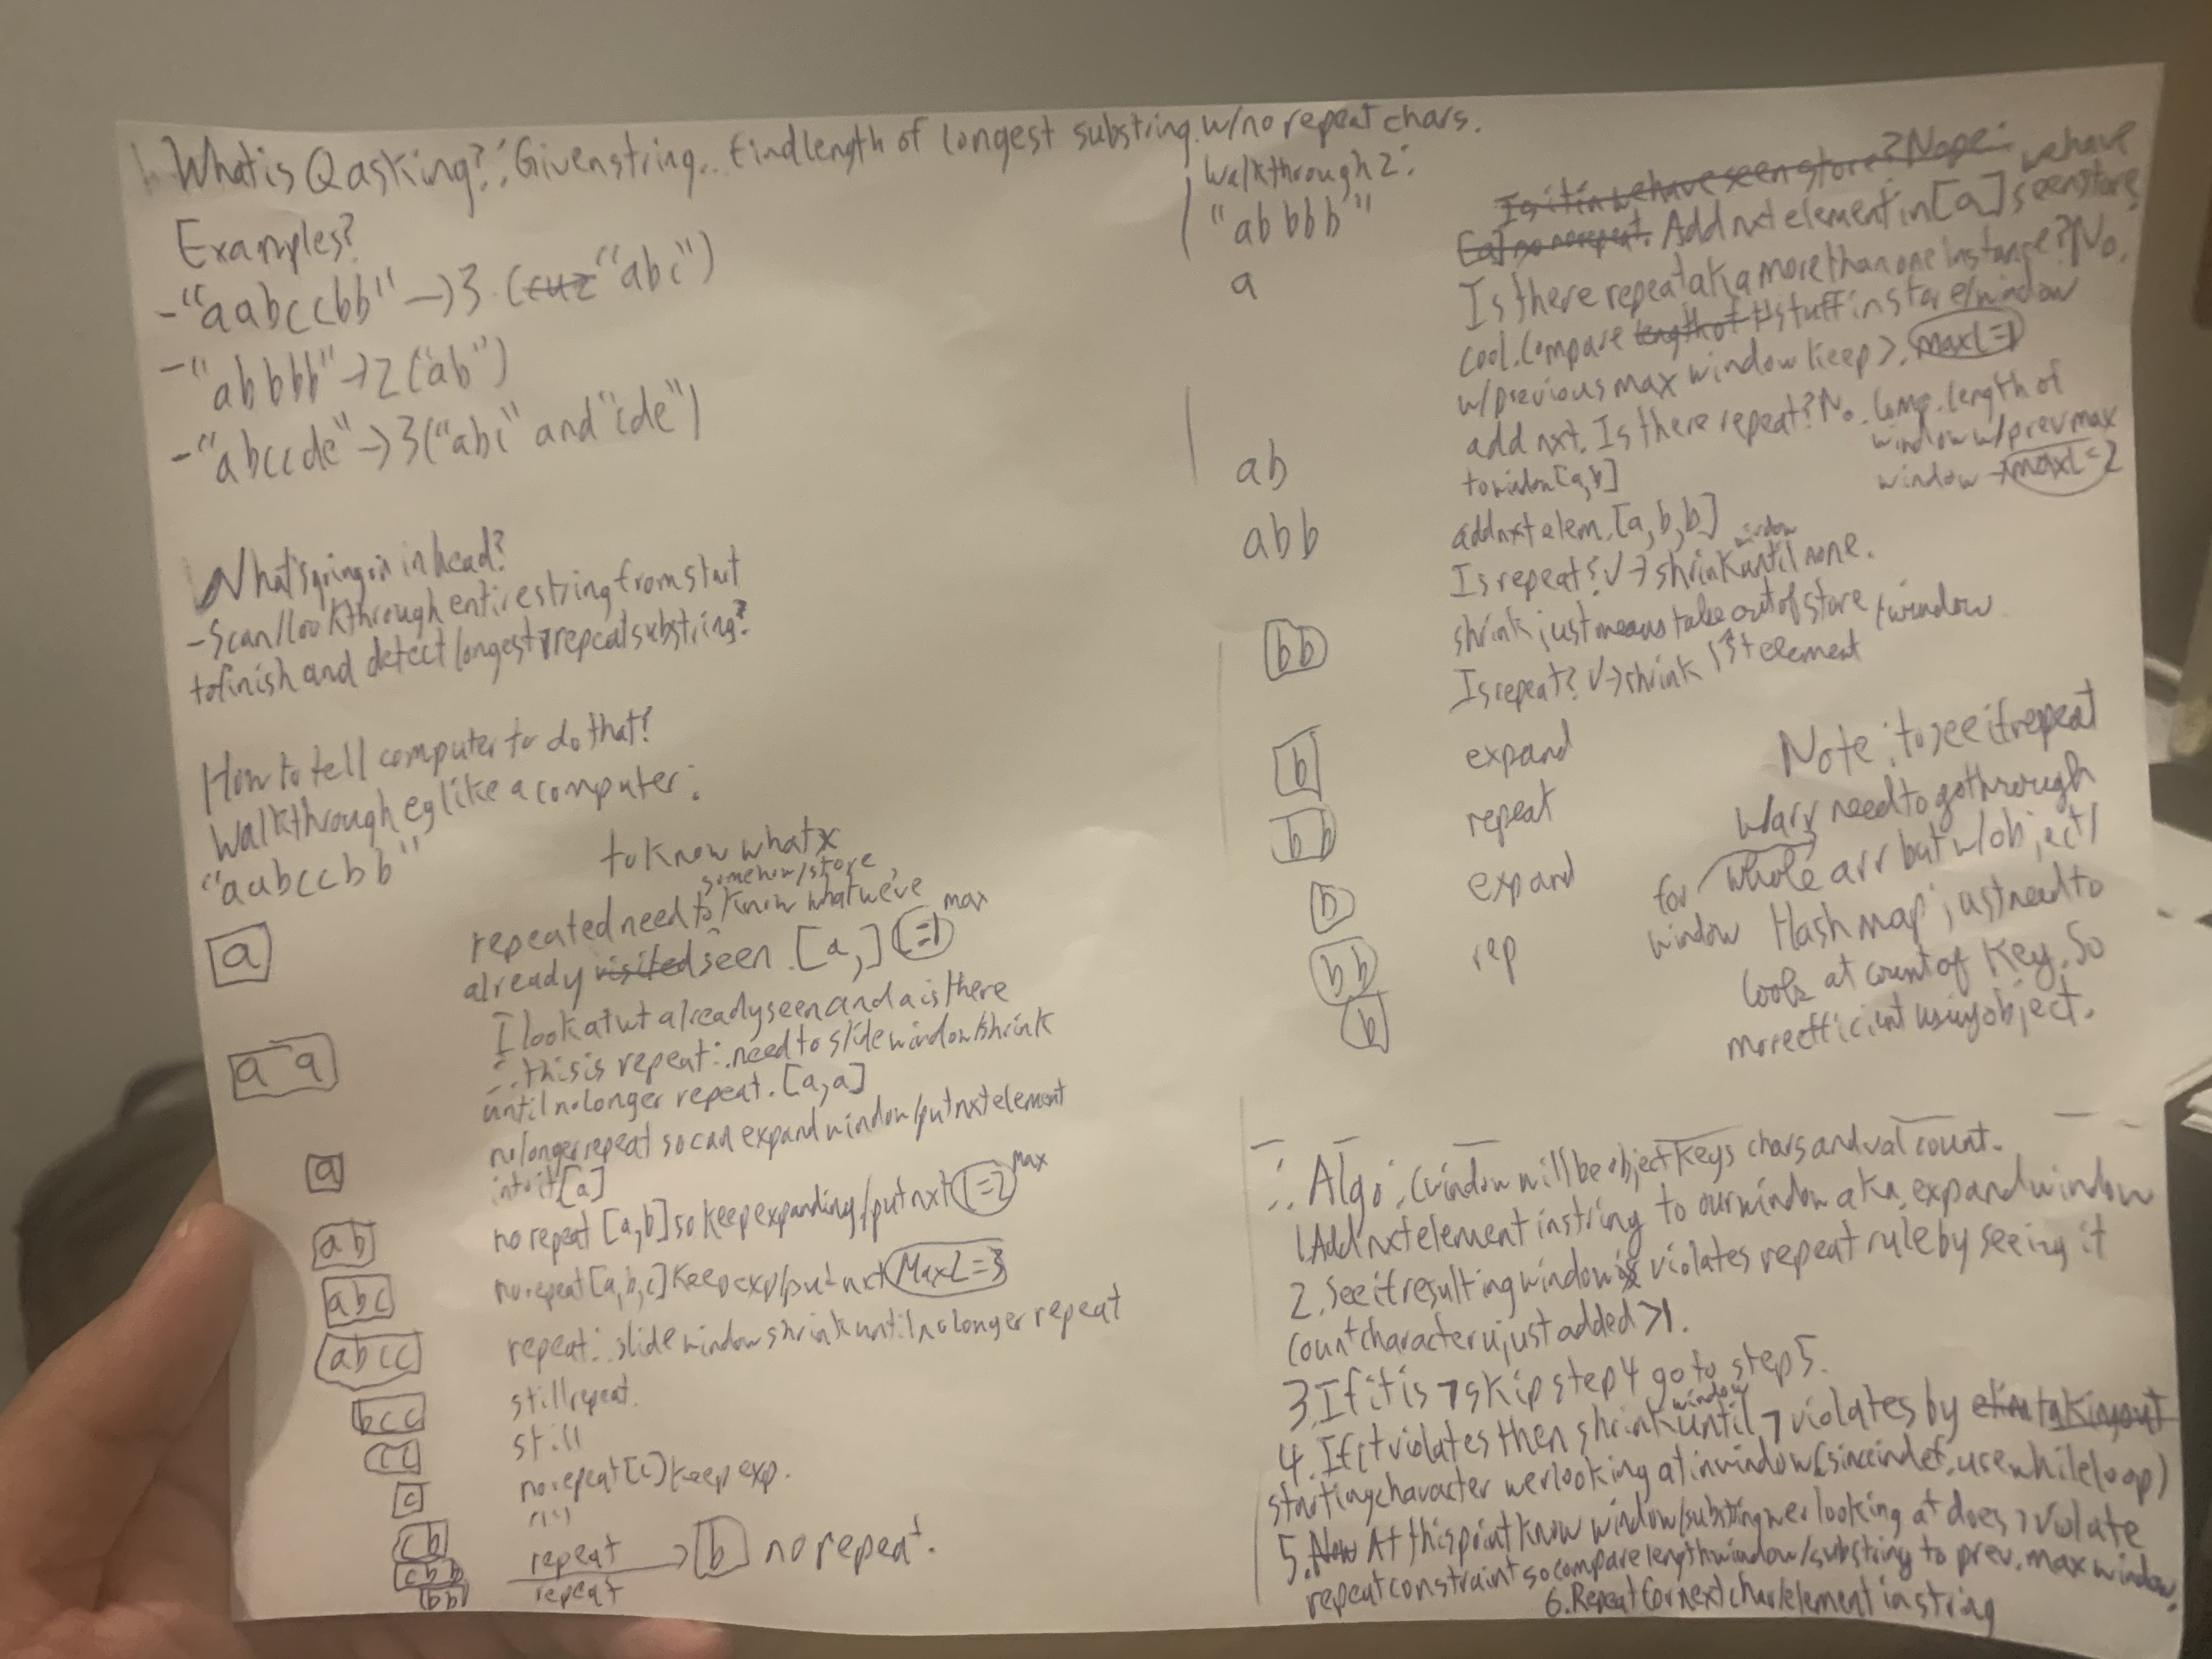 What is Q asking?: Given string.. find length of longest substring. w/ no repeat chars.
Examples?
- "aabccbb" -> 3. (cuz "abc")
- "abbbb" -> 2 ("ab")
- "abccde" -> 3 ("abc" and "cde")
What's going on in head?
- Scan/look through entire string from start
to finish and detect longest ¬repeat substring?
How to tell computer to do that?
Walkthrough eg like a computer:
"aabccbb"
to know what x
somehow/store
repeated need to know what we've
a
already visited seen. [a,] L=1 max
I look at wt already seen and a is there
a a
∴ this is repeat ∴ need to slide window/shrink
until no longer repeat. [a,a]
no longer repeat so can expand window/put nxt element
a
into it [a]
ab
no repeat [a,b] so keep expanding/put nxt L=2 max
abc
no repeat [a,b,c] keep exp/put nxt MaxL=3
abcc
repeat ∴ slide window shrink until no longer repeat
bcc
still repeat.
cc
still
c
no repeat [c] keep exp.
cb
cbb
repeat -> b no repeat.
bb
repeat
Walkthrough 2:
"abbbb"
Is it in we have seen store? Nope ∴ we have
[a] no repeat. Add nxt element in [a] seen store
a
Is there repeat aka more than one instance? No.
cool. Compare length of # stuff in store/window
w/ previous max window keep >. maxL=1
ab
add nxt. Is there repeat? No. Comp. length of
to window [a,b]
window w/ prev max
window -> maxL=2
abb
add nxt elem. [a,b,b]
window
Is repeat? √ -> shrink until none.
bb
shrink just means take out of store/window
Is repeat? √ -> shrink 1st element
b
expand
bb
repeat
b
expand
bb
rep
b
Note: to see if repeat
w/ arr need to go through
for whole arr but w/ object/
window Hash map just need to
look at count of key. So
more efficient using object.
∴ Algo: (window will be object keys chars and val count.
1. Add nxt element in string to our window aka. expand window
2. See if resulting window is violates repeat rule by seeing if
count character u just added >1.
3. If it is ¬ skip step 4 go to step 5.
window
4. If it violates then shrink until ¬ violates by taking out
starting character we r looking at in window (since indef. use while loop)
5. Now At this point know window/substring we r looking at does ¬ violate
repeat constraint so compare length window/substring to prev. max window.
6. Repeat for next char/element in string